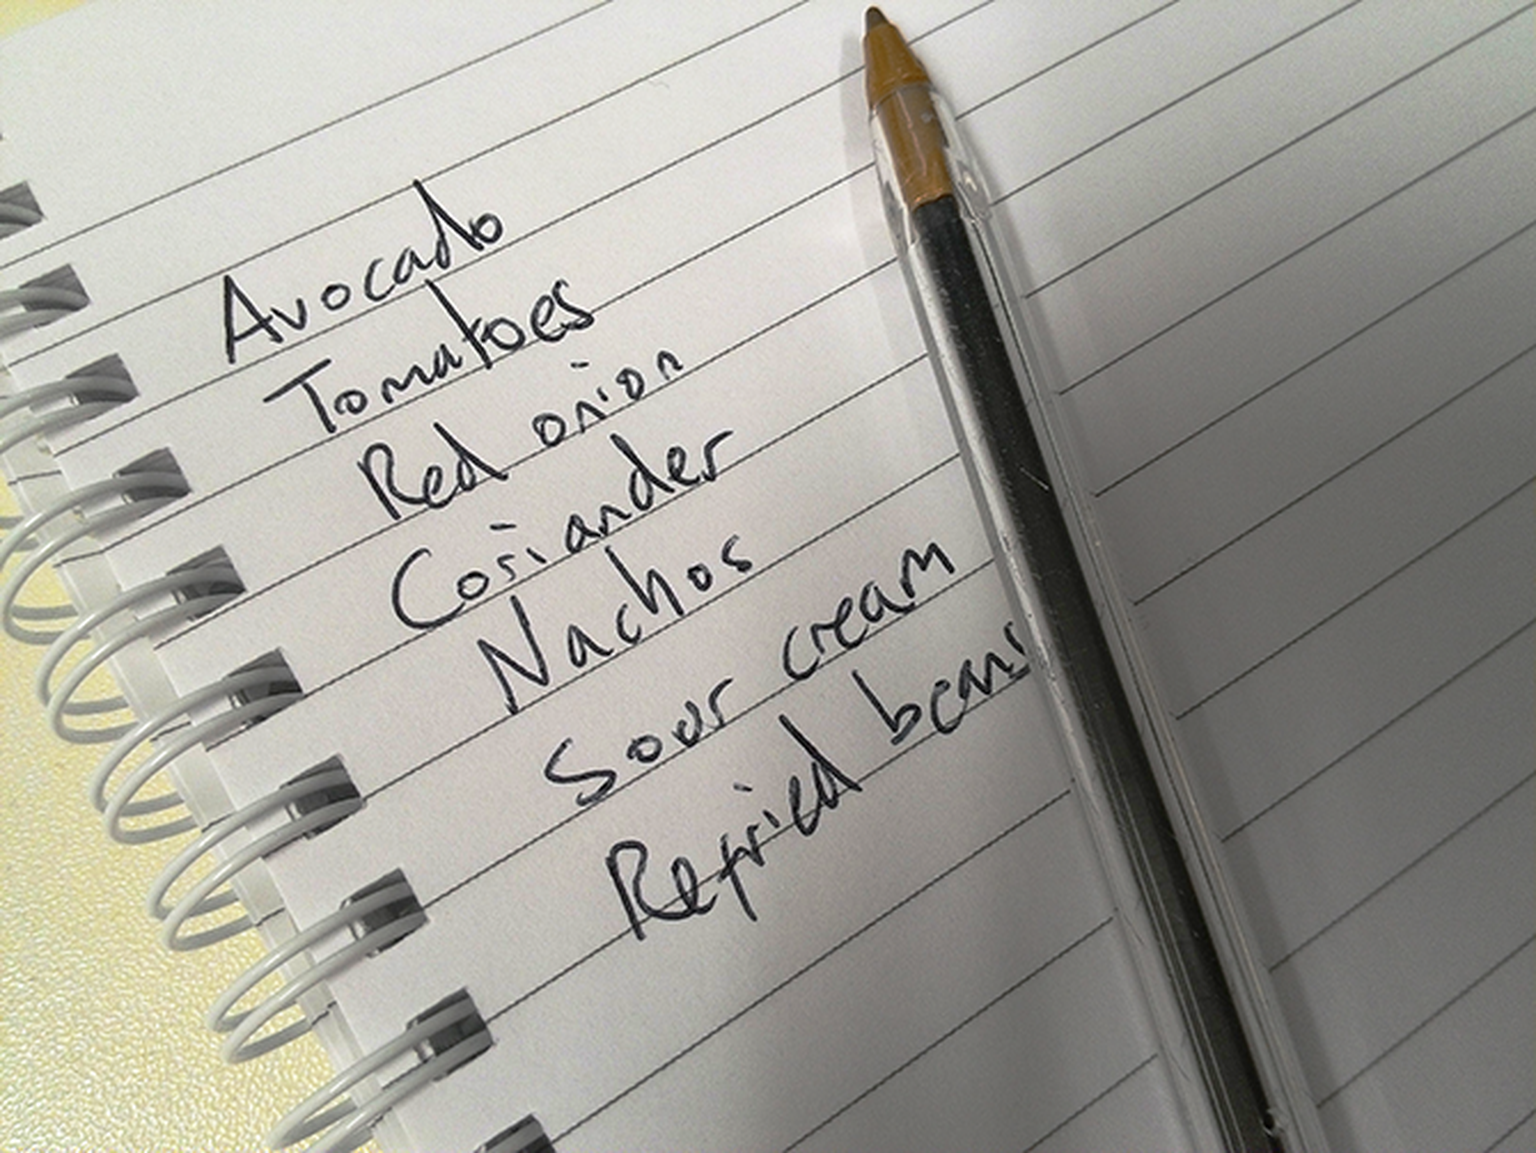 Avocado
Tomatoes
Red onion
Coriander
Nachos
Sour cream
Refried beans